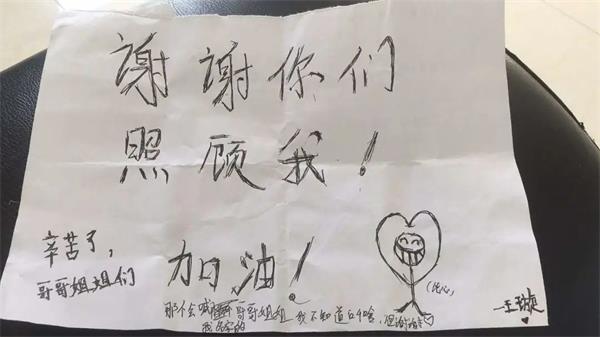 谢谢你们
照顾我!
辛苦了,
哥哥姐姐们
加油!
(比心)
—王璇
那个会喊 哥哥姐姐 我不知道 啥,但谢谢
我名字的